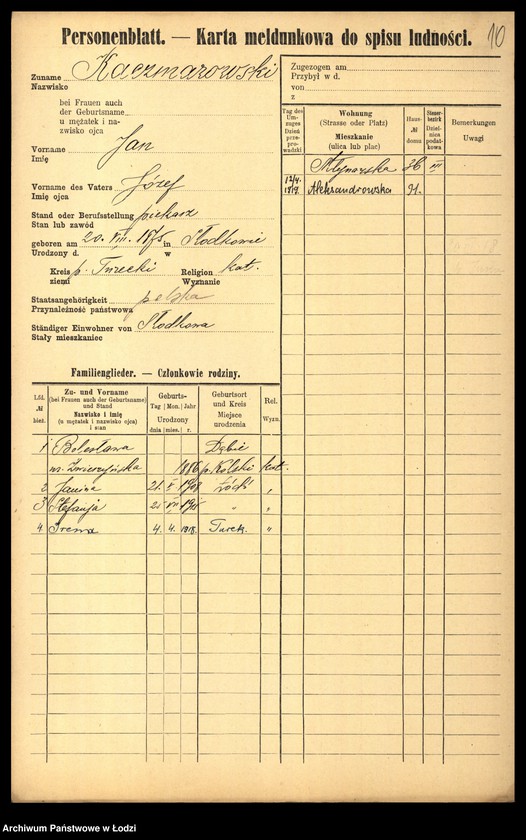 10
Personenblatt. — Karta meldunkowa do spisu ludności.
Zuname Kaczmarowski
Nazwisko
bei Frauen auch
der Geburtsname
u mężatek i na-
zwisko ojca
Vorname Jan
Imię
Vorname des Vaters Józef
Imię ojca
Stand oder Berufsstellung piekarz
Stan lub zawód
geboren am 20. VIII. 1875 in Słodkowie
Urodzony d. w
Kreis p. Turecki Religion kat.
ziemi Wyznanie
Staatsangehörigkeit polska
Przynależność państwowa
Ständiger Einwohner von Słodkowa
Stały mieszkaniec
Zugezogen am
Przybył w d.
von
z
Tag des Um-zuges Dzień prze-prowadzki
Wohnung (Strasse oder Platz) Mieszkanie (ulica lub plac)
Haus- № domu
Steuer-bezirk Dziel-nica podat-kowa
Bemerkungen Uwagi
Młynarska 36 III
12/4. 1919. Aleksandrowska 91.
Familienglieder. — Członkowie rodziny.
Lfd. № bież.
Zu- und Vorname (bei Frauen auch der Geburtsname) und Stand Nazwisko i imię (u mężatek i nazwisko ojca) i stan
Geburts- Tag Mon. Jahr Urodzony dnia mies. r.
Geburtsort und Kreis Miejsce urodzenia
Rel. Wyzn.
1 Bolesława Dąbie
1886 p. Kolski kat.
2 Janina 21. 1908 Łódź „
3 Stefanja 21 VII 1911 „ „
4 Irena 4. 4. 1918. Turek. „
Archiwum Państwowe w Łodzi